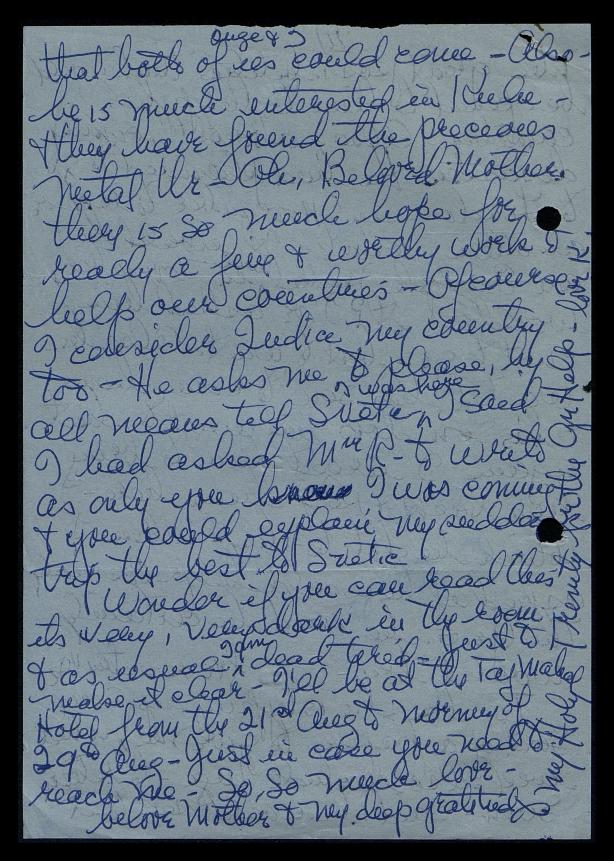 Inge & I
that both of us could come - Also -
he is much interested in Kulu -
& they have found the precious
metal Ur - Oh, Beloved Mother.
there is so much hope for
really a fine & worthy work &
help our countries - Of course
I consider India my country
too - He asks me to please, by
all means tell Svetic I was here I said
I had asked Mrs R- to write
as only you know I was coming
& you could explain my sudden
trip the best to Svetic
Wonder if you can read this
its very, very dark in the room
& as usual I am dead tired - Just to
make it clear - I'll be at the Taj Mahal
Hotel from the 21st Aug to morning of
29th Aug - Just in case you need to
reach me - So, So much love -
belove Mother & my deep gratitude
to my Holy Trinity for the Help - love K.